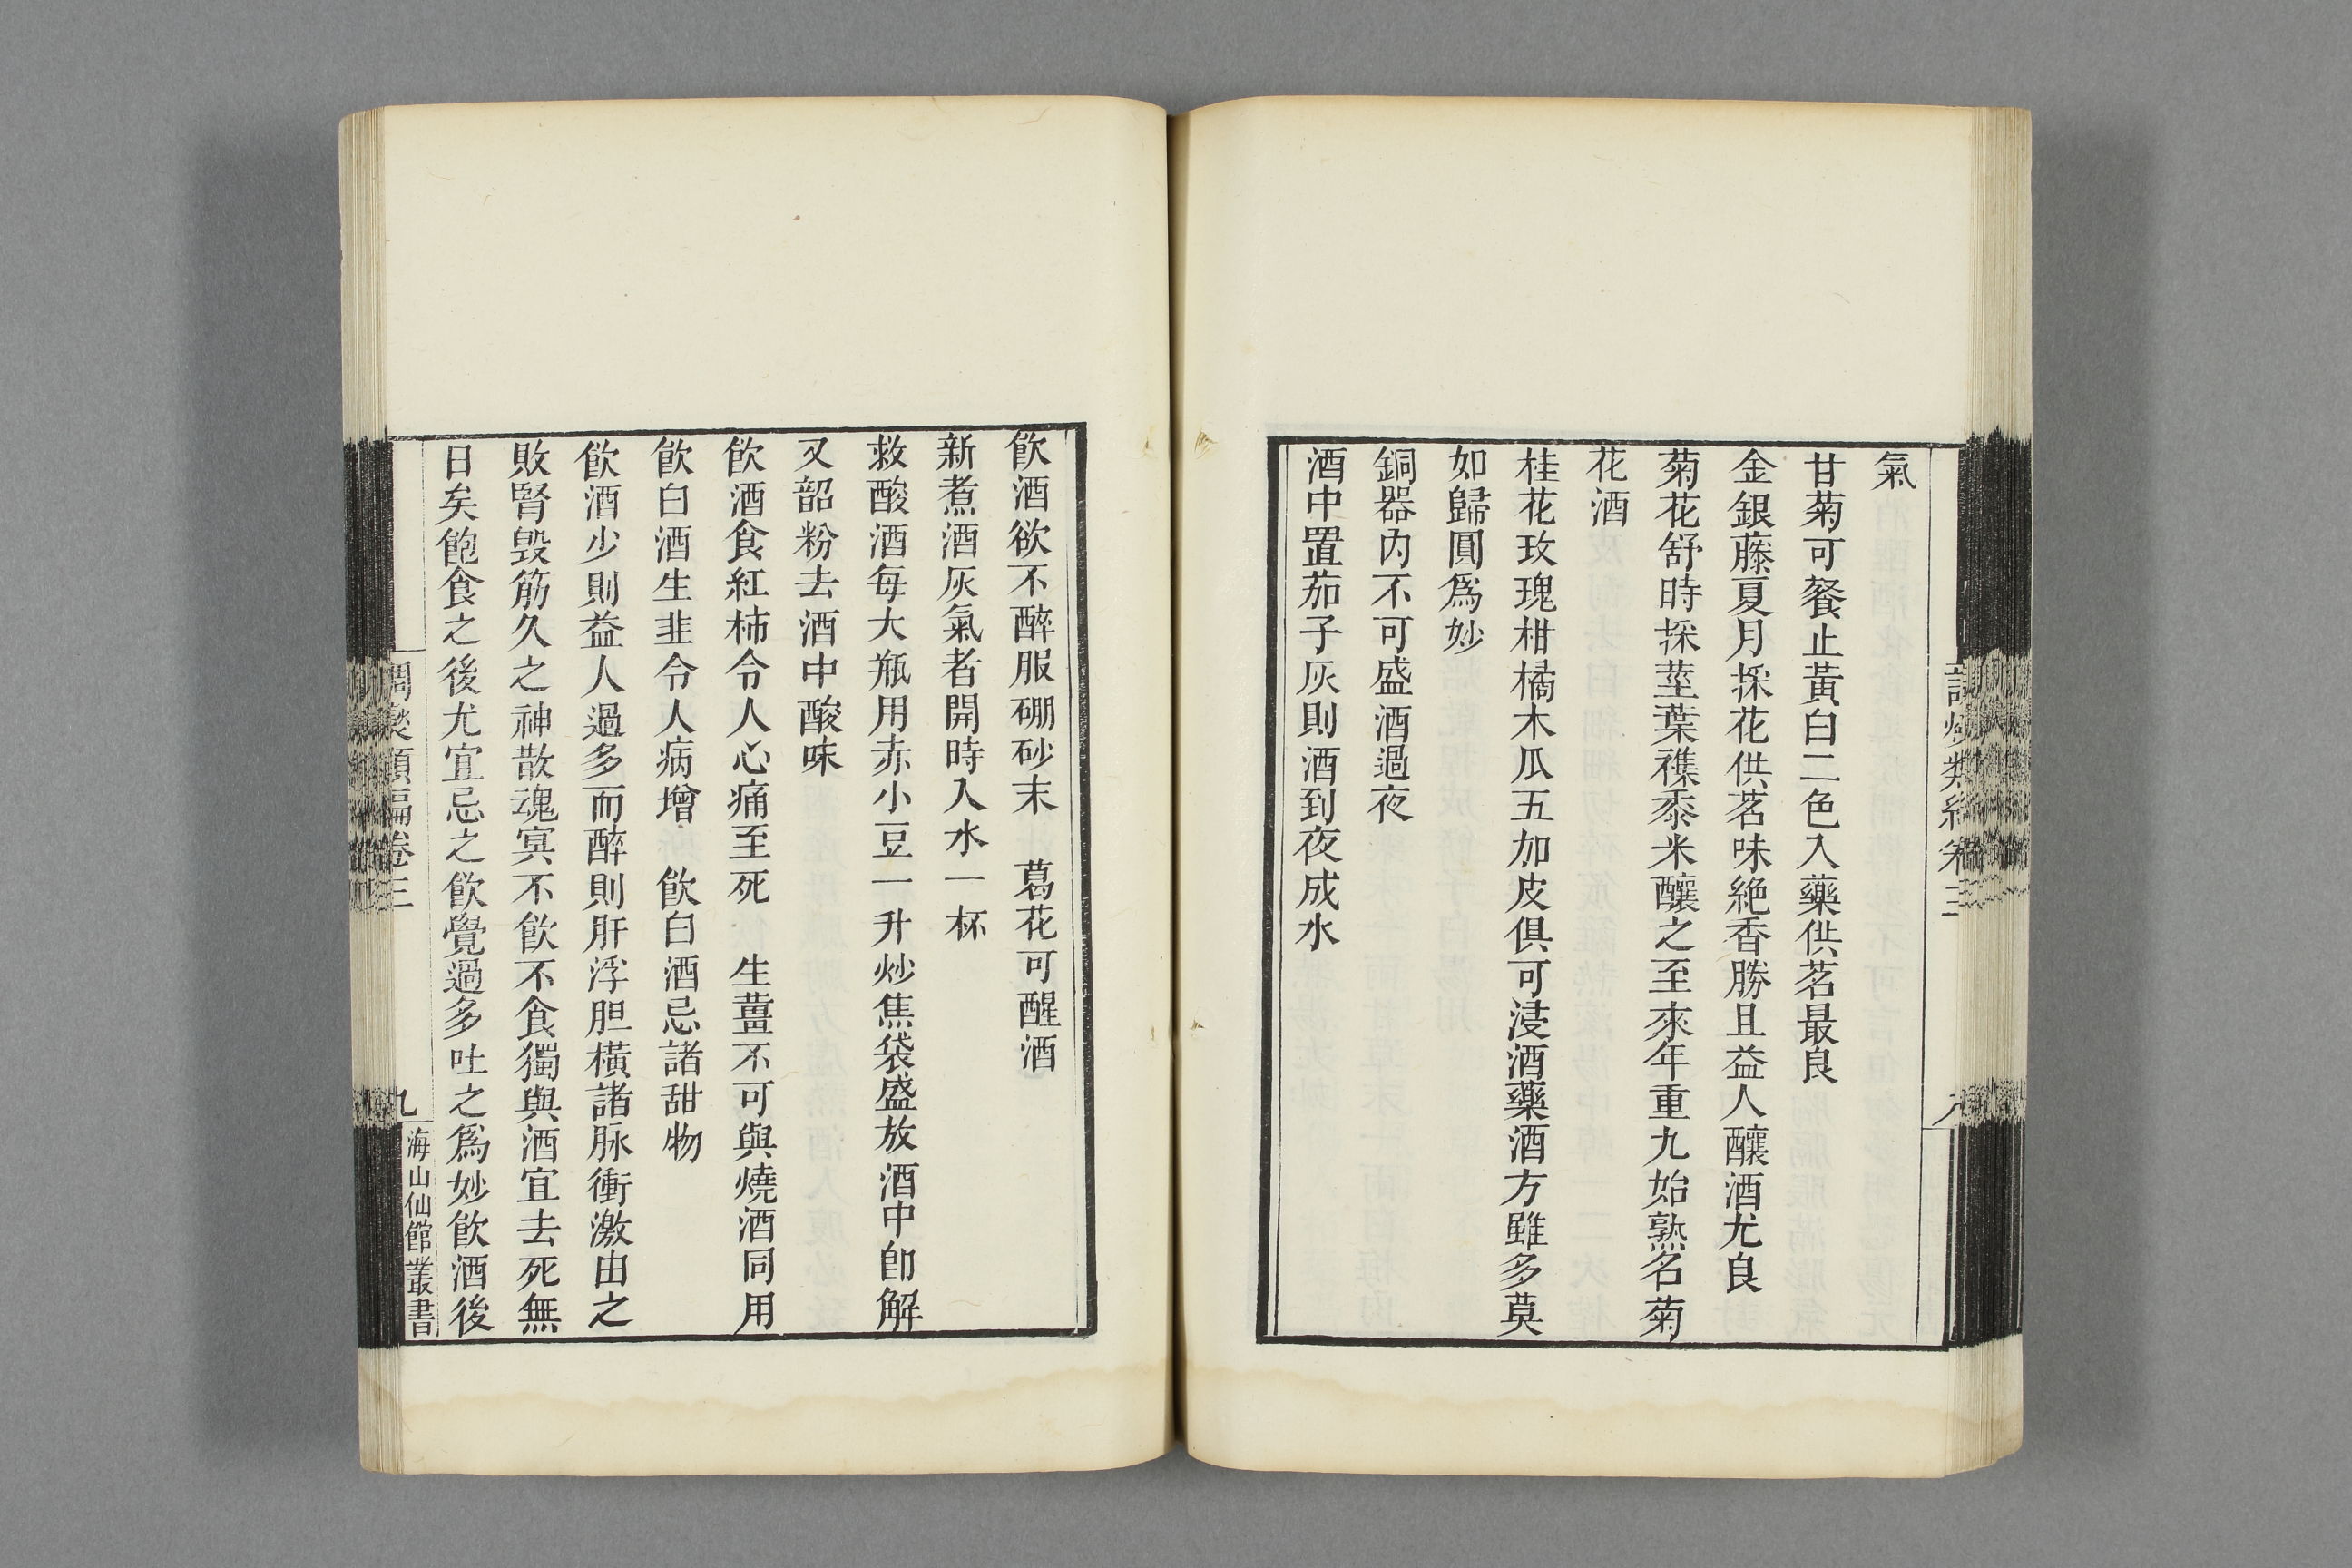 氣
甘菊可餐止黃白二色入藥供茗最良
金銀藤夏月採花供茗味絶香勝且益人釀酒尤良
菊花舒時採莖葉襍黍米釀之至來年重九始熟名菊
花酒
桂花玫瑰柑橘木瓜五加皮俱可浸酒藥酒方雖多莫
如歸圓爲妙
銅器內不可盛酒過夜
酒中置茄子灰則酒到夜成水
飮酒欲不醉服硼砂末　葛花可醒酒
新煮酒灰氣者開時入水一杯
救酸酒每大瓶用赤小豆一升炒焦袋盛放酒中卽解
又韶粉去酒中酸味
飮酒食紅柿令人心痛至死　生薑不可與燒酒同用
飮白酒生韭令人病增　飮白酒忌諸甜物
飮酒少則益人過多而醉則肝浮胆橫諸脉衝激由之
敗腎毀筋久之神散魂冥不飮不食獨與酒宜去死無
日矣飽食之後尤宜忌之飮覺過多吐之爲妙飮酒後
調燮類編卷三
九
海山仙館叢書